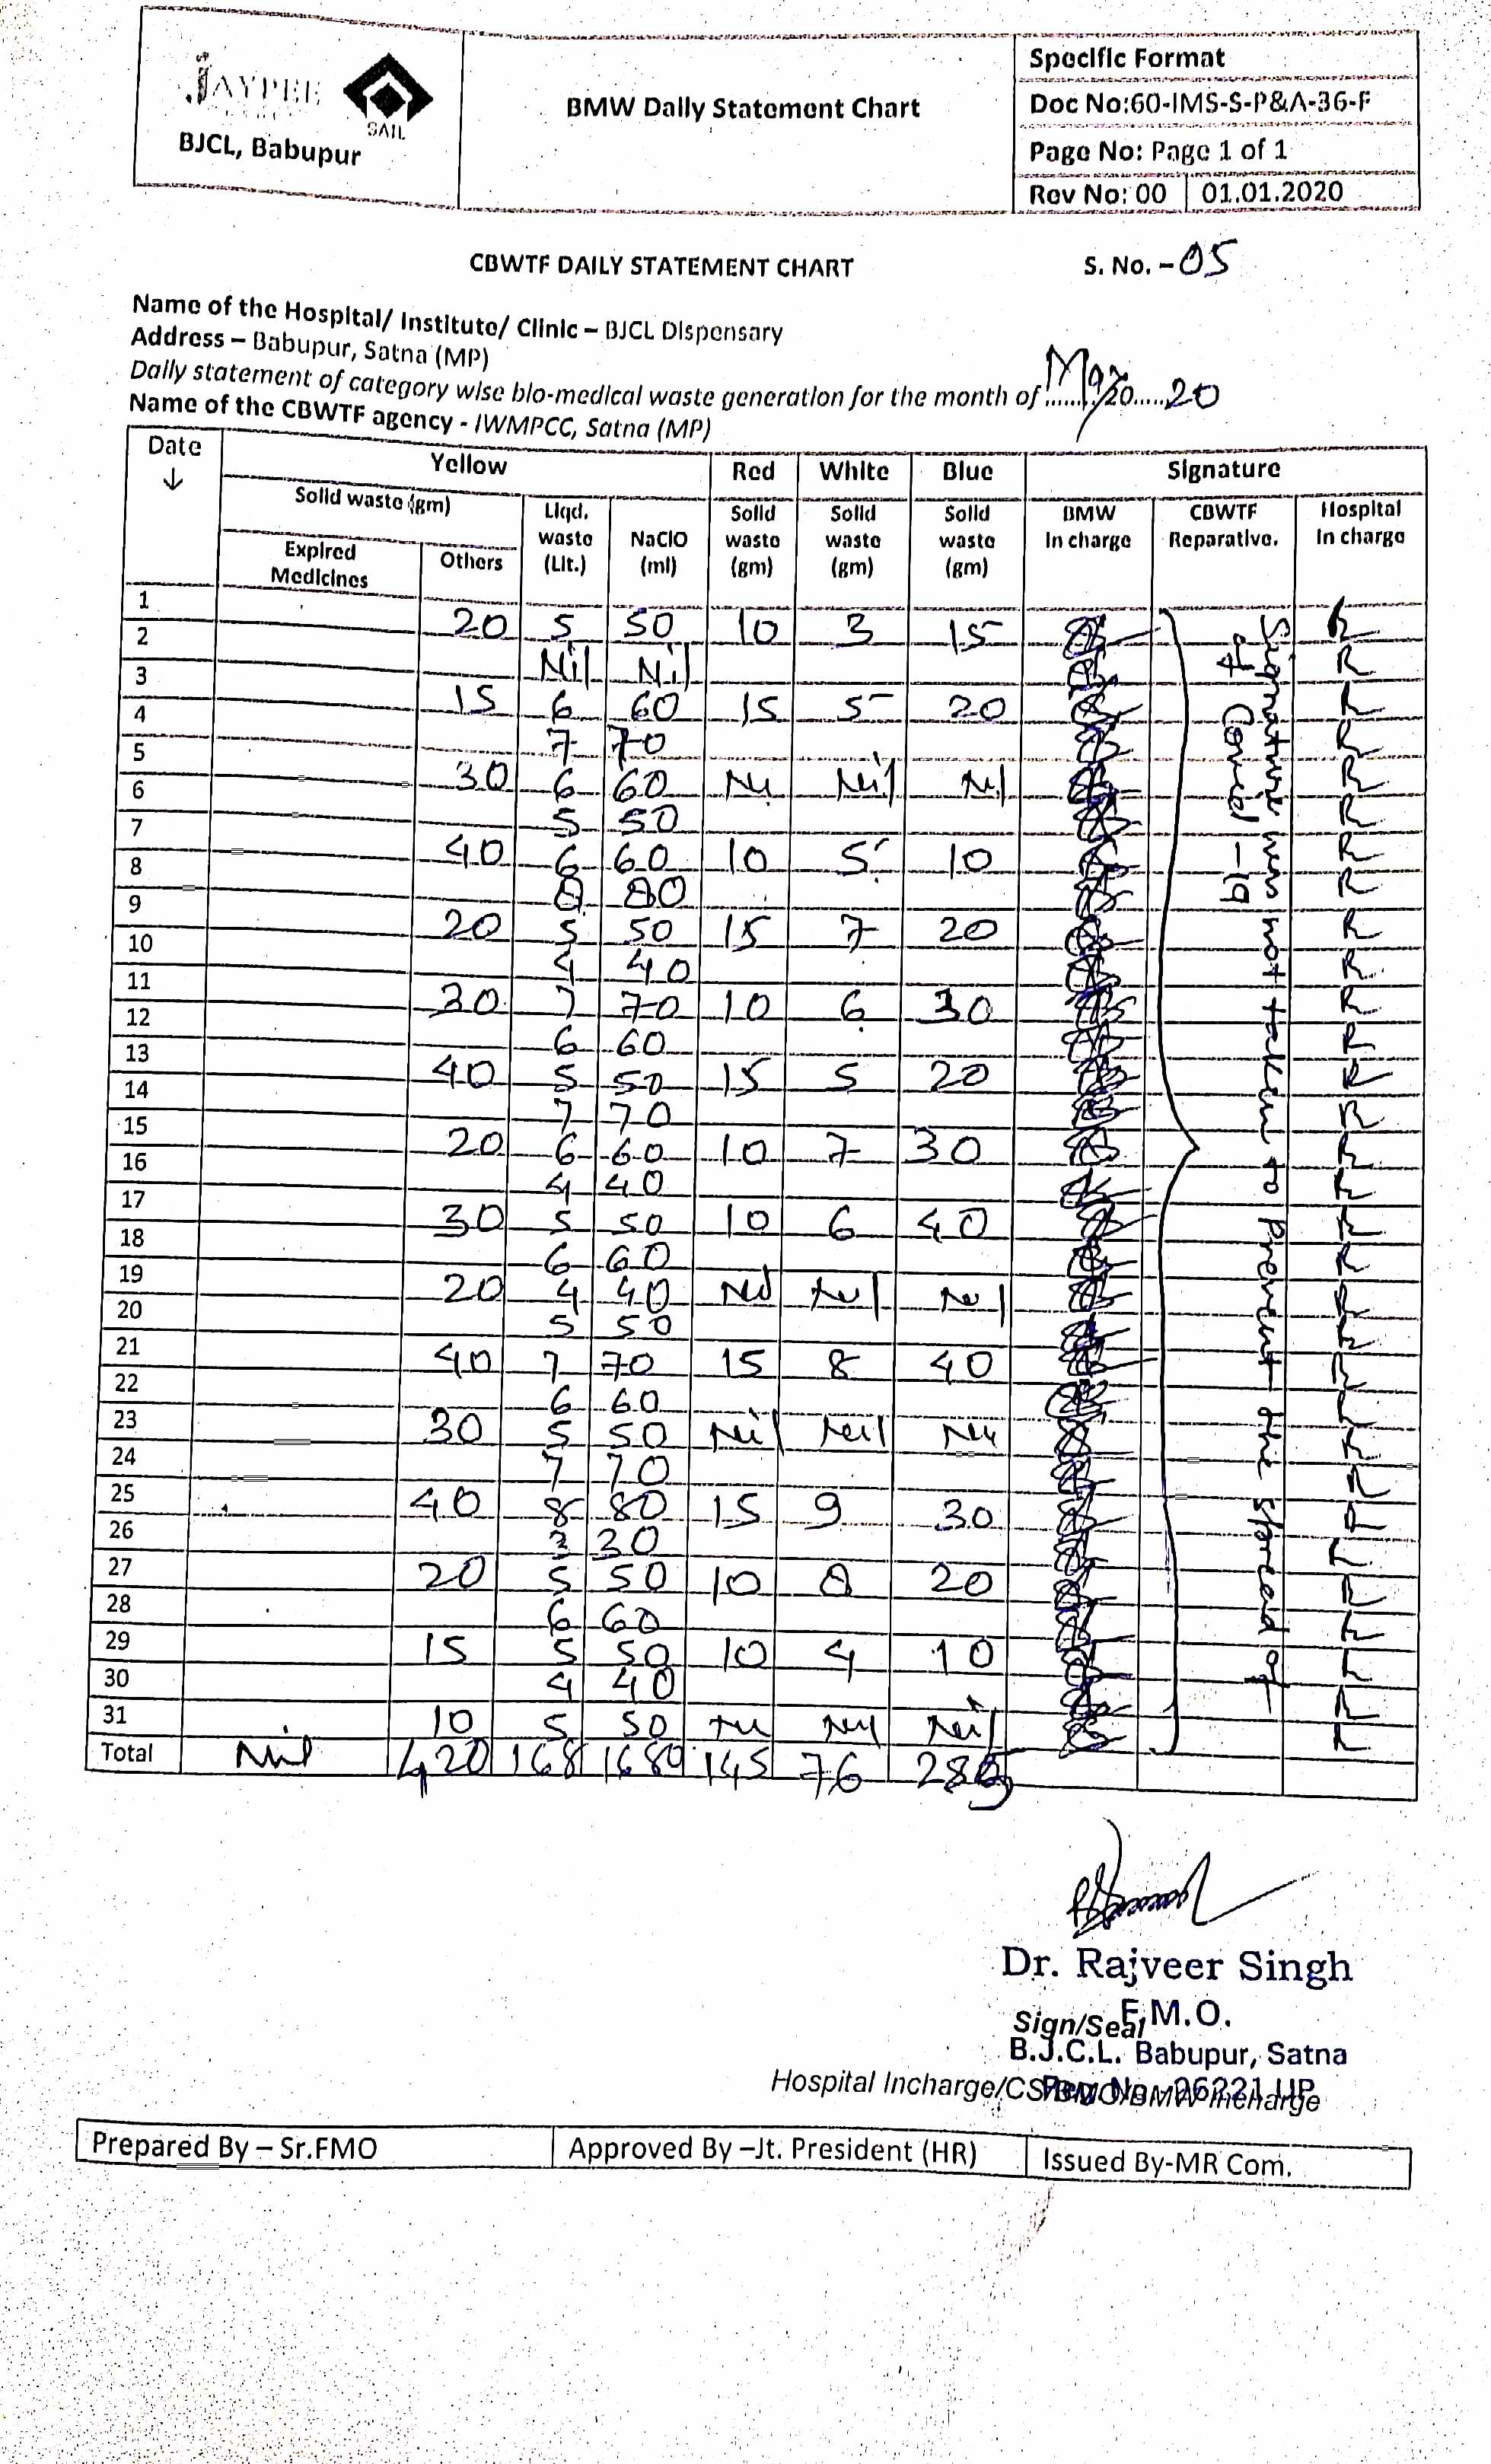 JAYPEE
SAIL
BJCL, Babupur
BMW Daily Statement Chart
Specific Format
Doc No:60-IMS-S-P&A-36-F
Page No: Page 1 of 1
Rev No: 00 01.01.2020
CBWTF DAILY STATEMENT CHART S. No. - 05
Name of the Hospital/ Institute/ Clinic – BJCL Dispensary
Address – Babupur, Satna (MP)
Daily statement of category wise bio-medical waste generation for the month of ........./20.....20
Name of the CBWTF agency - IWMPCC, Satna (MP)
Date ↓ Yellow Red White Blue Signature
Solid waste (gm) Liqd. waste (Lit.) NaClO (ml) Solid waste (gm) Solid waste (gm) Solid waste (gm) BMW In charge CBWTF Reparative. Hospital In charge
Expired Medicines Others
1 20 5 50 10 3 15 R
2 Nil Nil R
3 15 6 60 15 5 20 R
4 7 70 R
5 30 6 60 Nil Nil Nil R
6 5 50 R
7 40 6 60 10 5 10 R
8 8 80 R
9 20 5 50 15 7 20 R
10 4 40 R
11 30 7 70 10 6 30 R
12 6 60 R
13 40 5 50 15 5 20 R
14 7 70 R
15 20 6 60 10 7 30 R
16 4 40 R
17 30 5 50 10 6 40 R
18 6 60 R
19 20 4 40 Nil Nil Nil R
20 5 50 R
21 40 7 70 15 8 40 R
22 6 60 R
23 30 5 50 Nil Nil Nil R
24 7 70 R
25 40 8 80 15 9 30 R
26 3 30 R
27 20 5 50 10 8 20 R
28 6 60 R
29 15 5 50 10 4 10 R
30 4 40 R
31 10 5 50 Nil Nil Nil R
Total Nil 420 168 1680 145 76 285
Signature was not taken to Prevent the spread of
of Coved-19
Dr. Rajveer Singh
F.M.O.
Sign/Seal
B.J.C.L. Babupur, Satna
Reg. No.-26221 UP
Hospital Incharge/CS/BMO/BMW Incharge
Prepared By – Sr.FMO Approved By –Jt. President (HR) Issued By-MR Com.